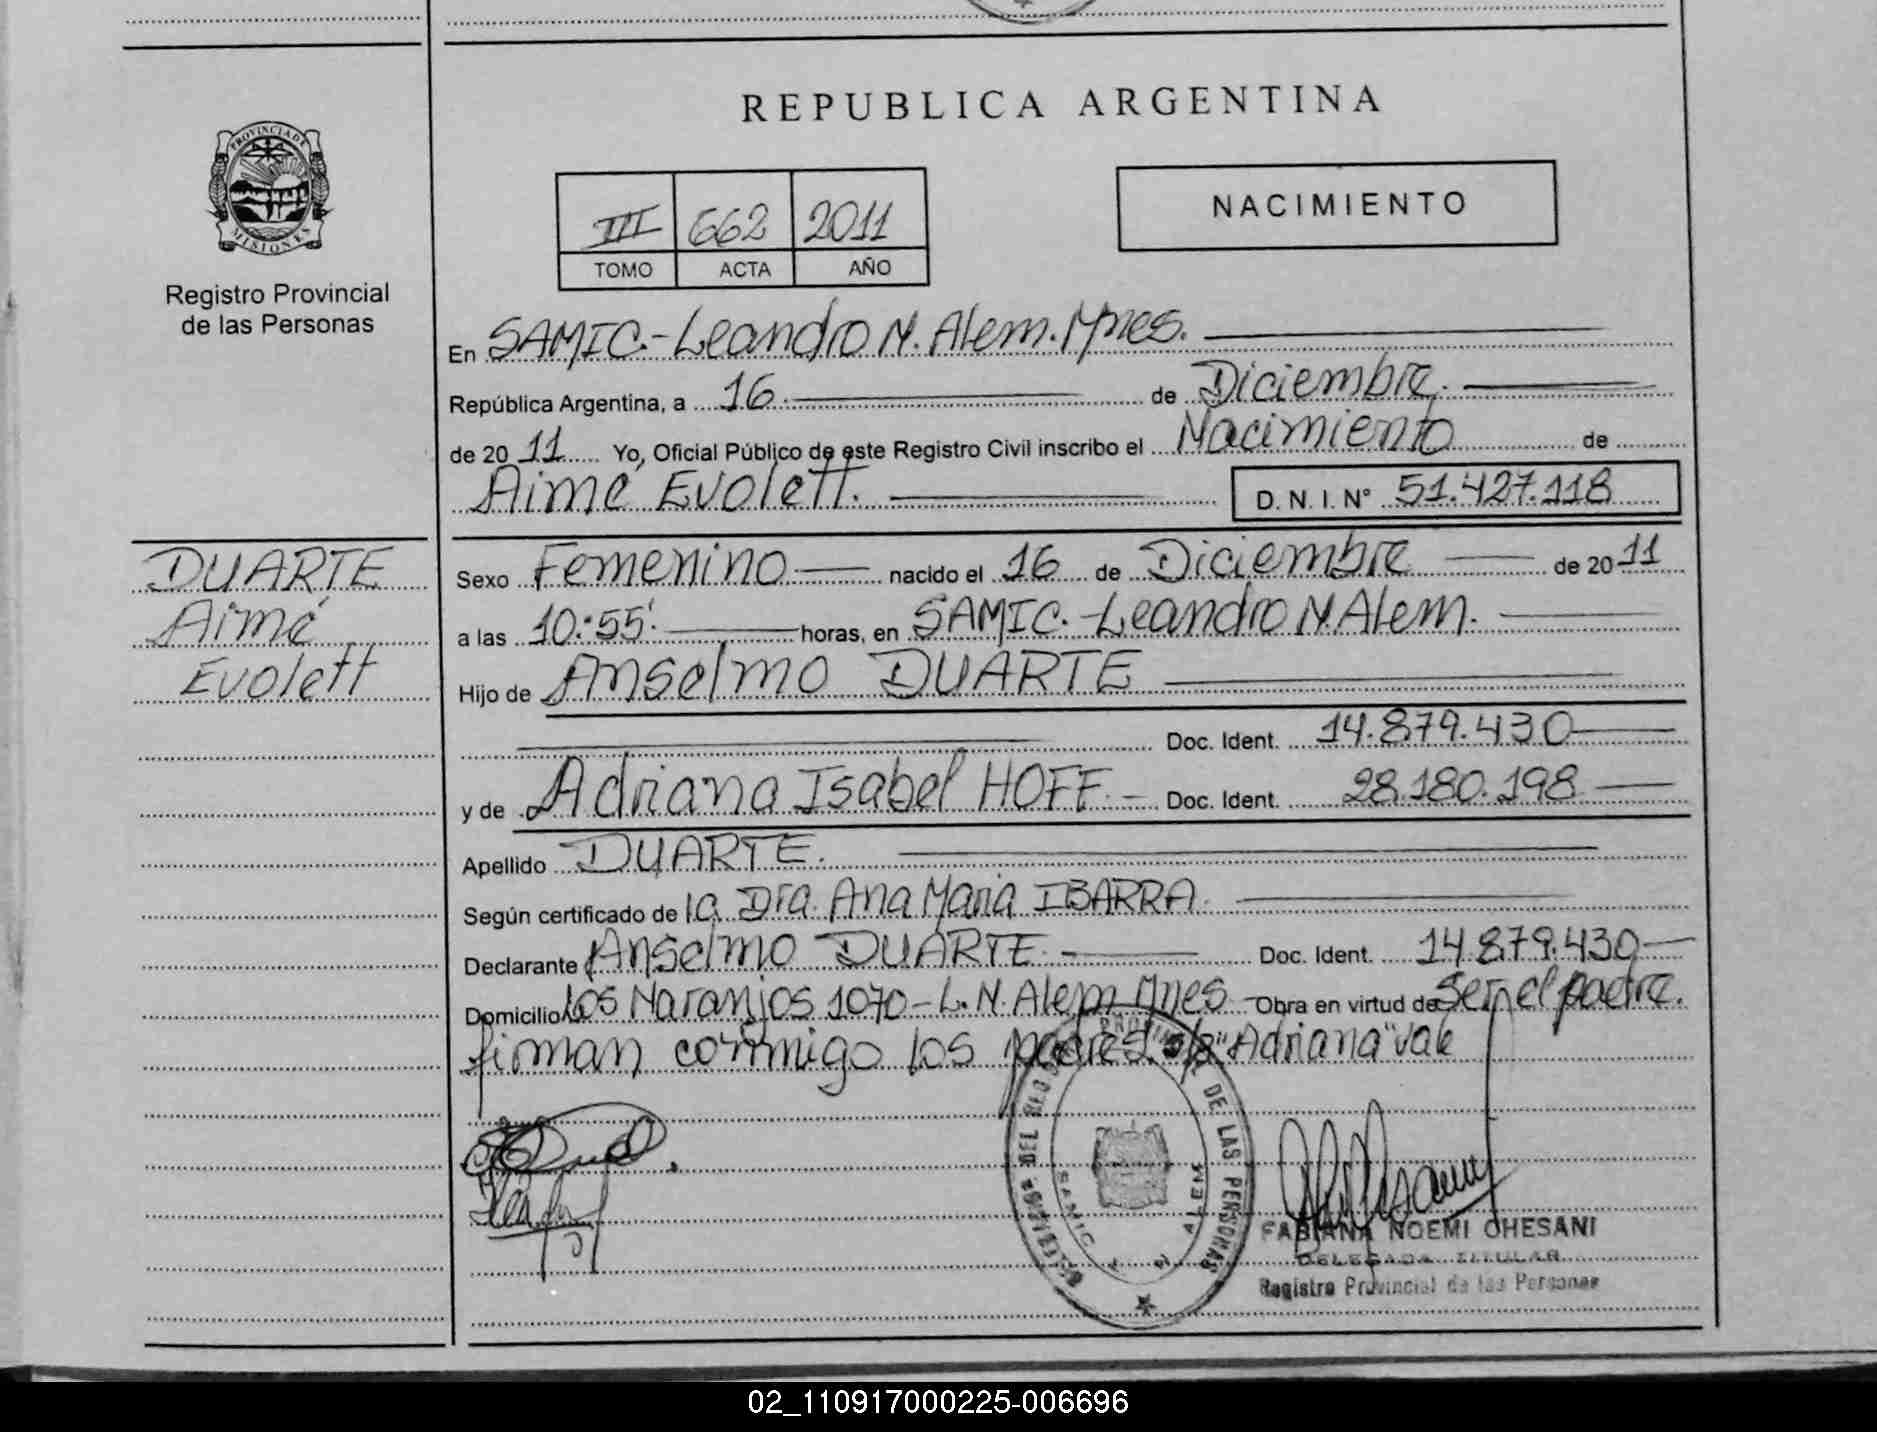 REPUBLICA ARGENTINA
PROVINCIA DE
MISIONES
Registro Provincial
de las Personas
III 662 2011
TOMO ACTA AÑO
NACIMIENTO
En SAMIC.-Leandro N. Alem. Mnes.
República Argentina, a 16 de Diciembre
de 20 11 Yo, Oficial Público de este Registro Civil inscribo el Nacimiento de
Aimé Evolett. D. N. I. N° 51.427.118
DUARTE
Aimé
Evolett
Sexo Femenino nacido el 16 de Diciembre de 20 11
a las 10:55' horas, en SAMIC.-Leandro N. Alem.
Hijo de Anselmo DUARTE
Doc. Ident. 14.879.430
y de Adriana Isabel HOFF Doc. Ident. 28.180.198
Apellido DUARTE.
Según certificado de la Dra. Ana Maria IBARRA
Declarante Anselmo DUARTE Doc. Ident. 14.879.430
Domicilio Los Naranjos 1070 - L. N. Alem Mnes Obra en virtud de Ser el padre.
firman conmigo los padres "Adriana" vale
DE LAS PERSONAS
SAMIC
FABIANA NOEMI CHESANI
DELEGADA TITULAR
Registro Provincial de las Personas
02_110917000225-006696